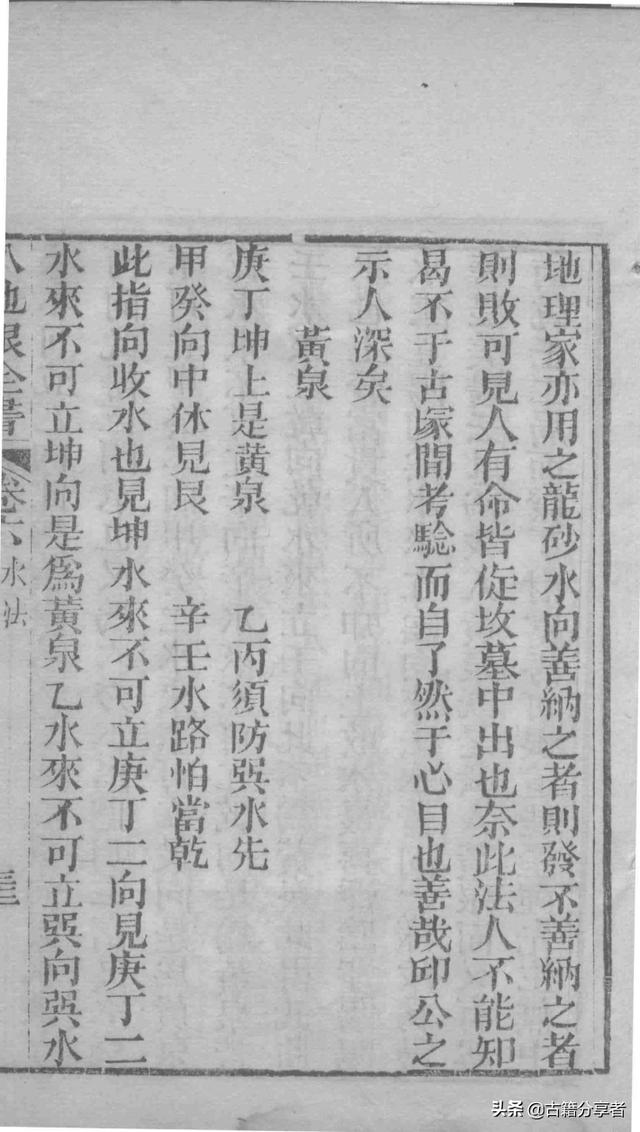 地理家亦用之龍砂水向善納之者則發不善納之者
則敗可見人有命皆從坟墓中出也奈此法人不能知
曷不于古塚間考騐而自了然于心目也善哉邱公之
示人深矣
黃泉
庚丁坤上是黃泉　乙丙須防巽水先
甲癸向中休見艮　辛壬水路怕當乾
此指向收水也見坤水來不可立庚丁二向見庚丁二
水來不可立坤向是爲黃泉乙水來不可立巽向巽水
八地眼全書 卷六 水法
头条 @古籍分享者